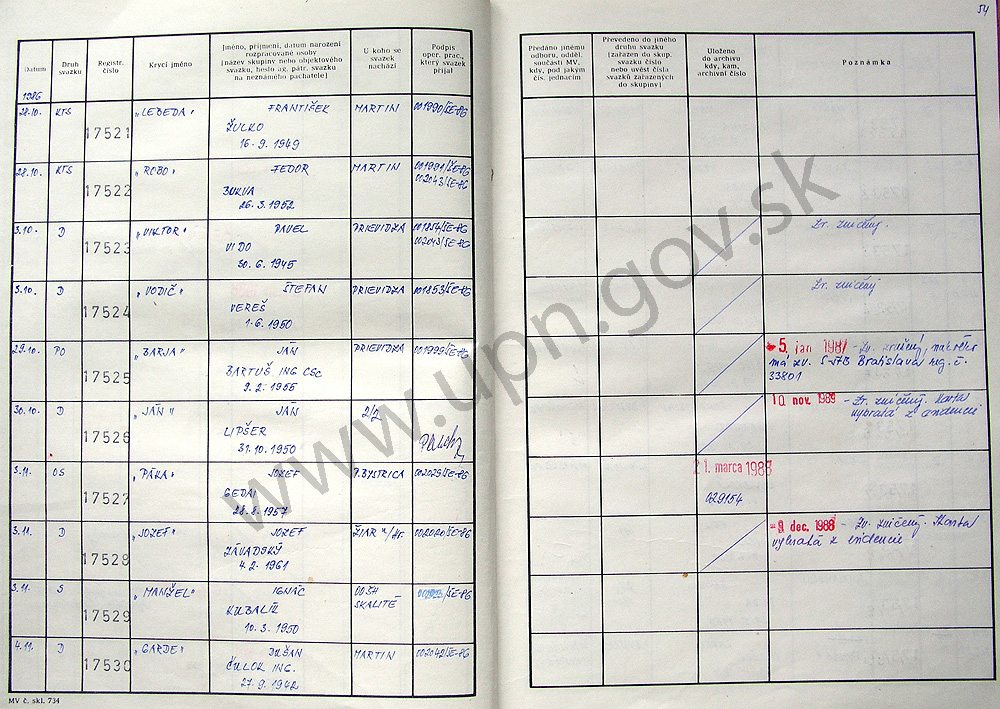 54
Datum
Druh svazku
Registr. číslo
Krycí jméno
Jméno, příjmení, datum narození
rozpracované osoby
(název skupiny nebo objektového
svazku, heslo ag. pátr. svazku
na neznámého pachatele)
U koho se
svazek
nachází
Podpis
oper. prac.,
který svazek
přijal
Předáno jinému
odboru, odděl.
součásti MV,
kdy, pod jakým
čís. jednacím
Převedeno do jiného
druhu svazku
(zařazen do skup.
svazku číslo
nebo uvést čísla
svazků zařazených
do skupiny)
Uloženo
do archivu
kdy, kam,
archivní číslo
Poznámka
1986
28.10. KTS 17521 „LEBEDA" FRANTIŠEK MARTIN 001990/ŠE-86
ŽULKO
16. 9. 1949
28.10. KTS 17522 „ROBO" FEDOR MARTIN 001991/ŠE-86
002043/ŠE-86
BUKVA
26. 3. 1952
3.10. D 17523 „VIKTOR" PAVEL PRIEVIDZA 001854/ŠE-86
002043/ŠE-86
VIDO
30. 6. 1945
Zv. zničený.
3.10. D 17524 „VODIČ" ŠTEFAN PRIEVIDZA 001853/ŠE-86
VEREŠ
1. 6. 1950
Zv. zničený
29.10. PO 17525 „BARJA" JÁN PRIEVIDZA 001999/ŠE-86
BARTUŠ ING CSC
9. 2. 1955
5. jan 1987 - Zv. zrušený,
má zv. S-ŠTB Bratislava reg. č.
33801
30.10. D 17526 „JÁN" JÁN 2/2
LIPŠER
31. 10. 1950
10. nov. 1989 - Zv. zničený. Karta
vybratá z evidencie
3.11. OS 17527 „PÁKA" JOZEF P. BYSTRICA 002029/ŠE-86
GEDAI
28. 8. 1957
21. marca 1988
029154
3.11. D 17528 „JOZEF" JOZEF ŽIAR n/Hr. 002020/ŠE-86
ZÁVADSKÝ
4. 2. 1961
9 dec. 1988 - Zv. zničený. Karta
vybratá z evidencie
3.11. S 17529 „MANŽEL" IGNÁC OOŠH
SKALITÉ
KUBALÍK
10. 3. 1950
4.11. D 17530 „GARDE" DUŠAN MARTIN 002042/ŠE-86
ČULOK ING.
27. 9. 1942
MV č. skl. 734
www.upn.gov.sk